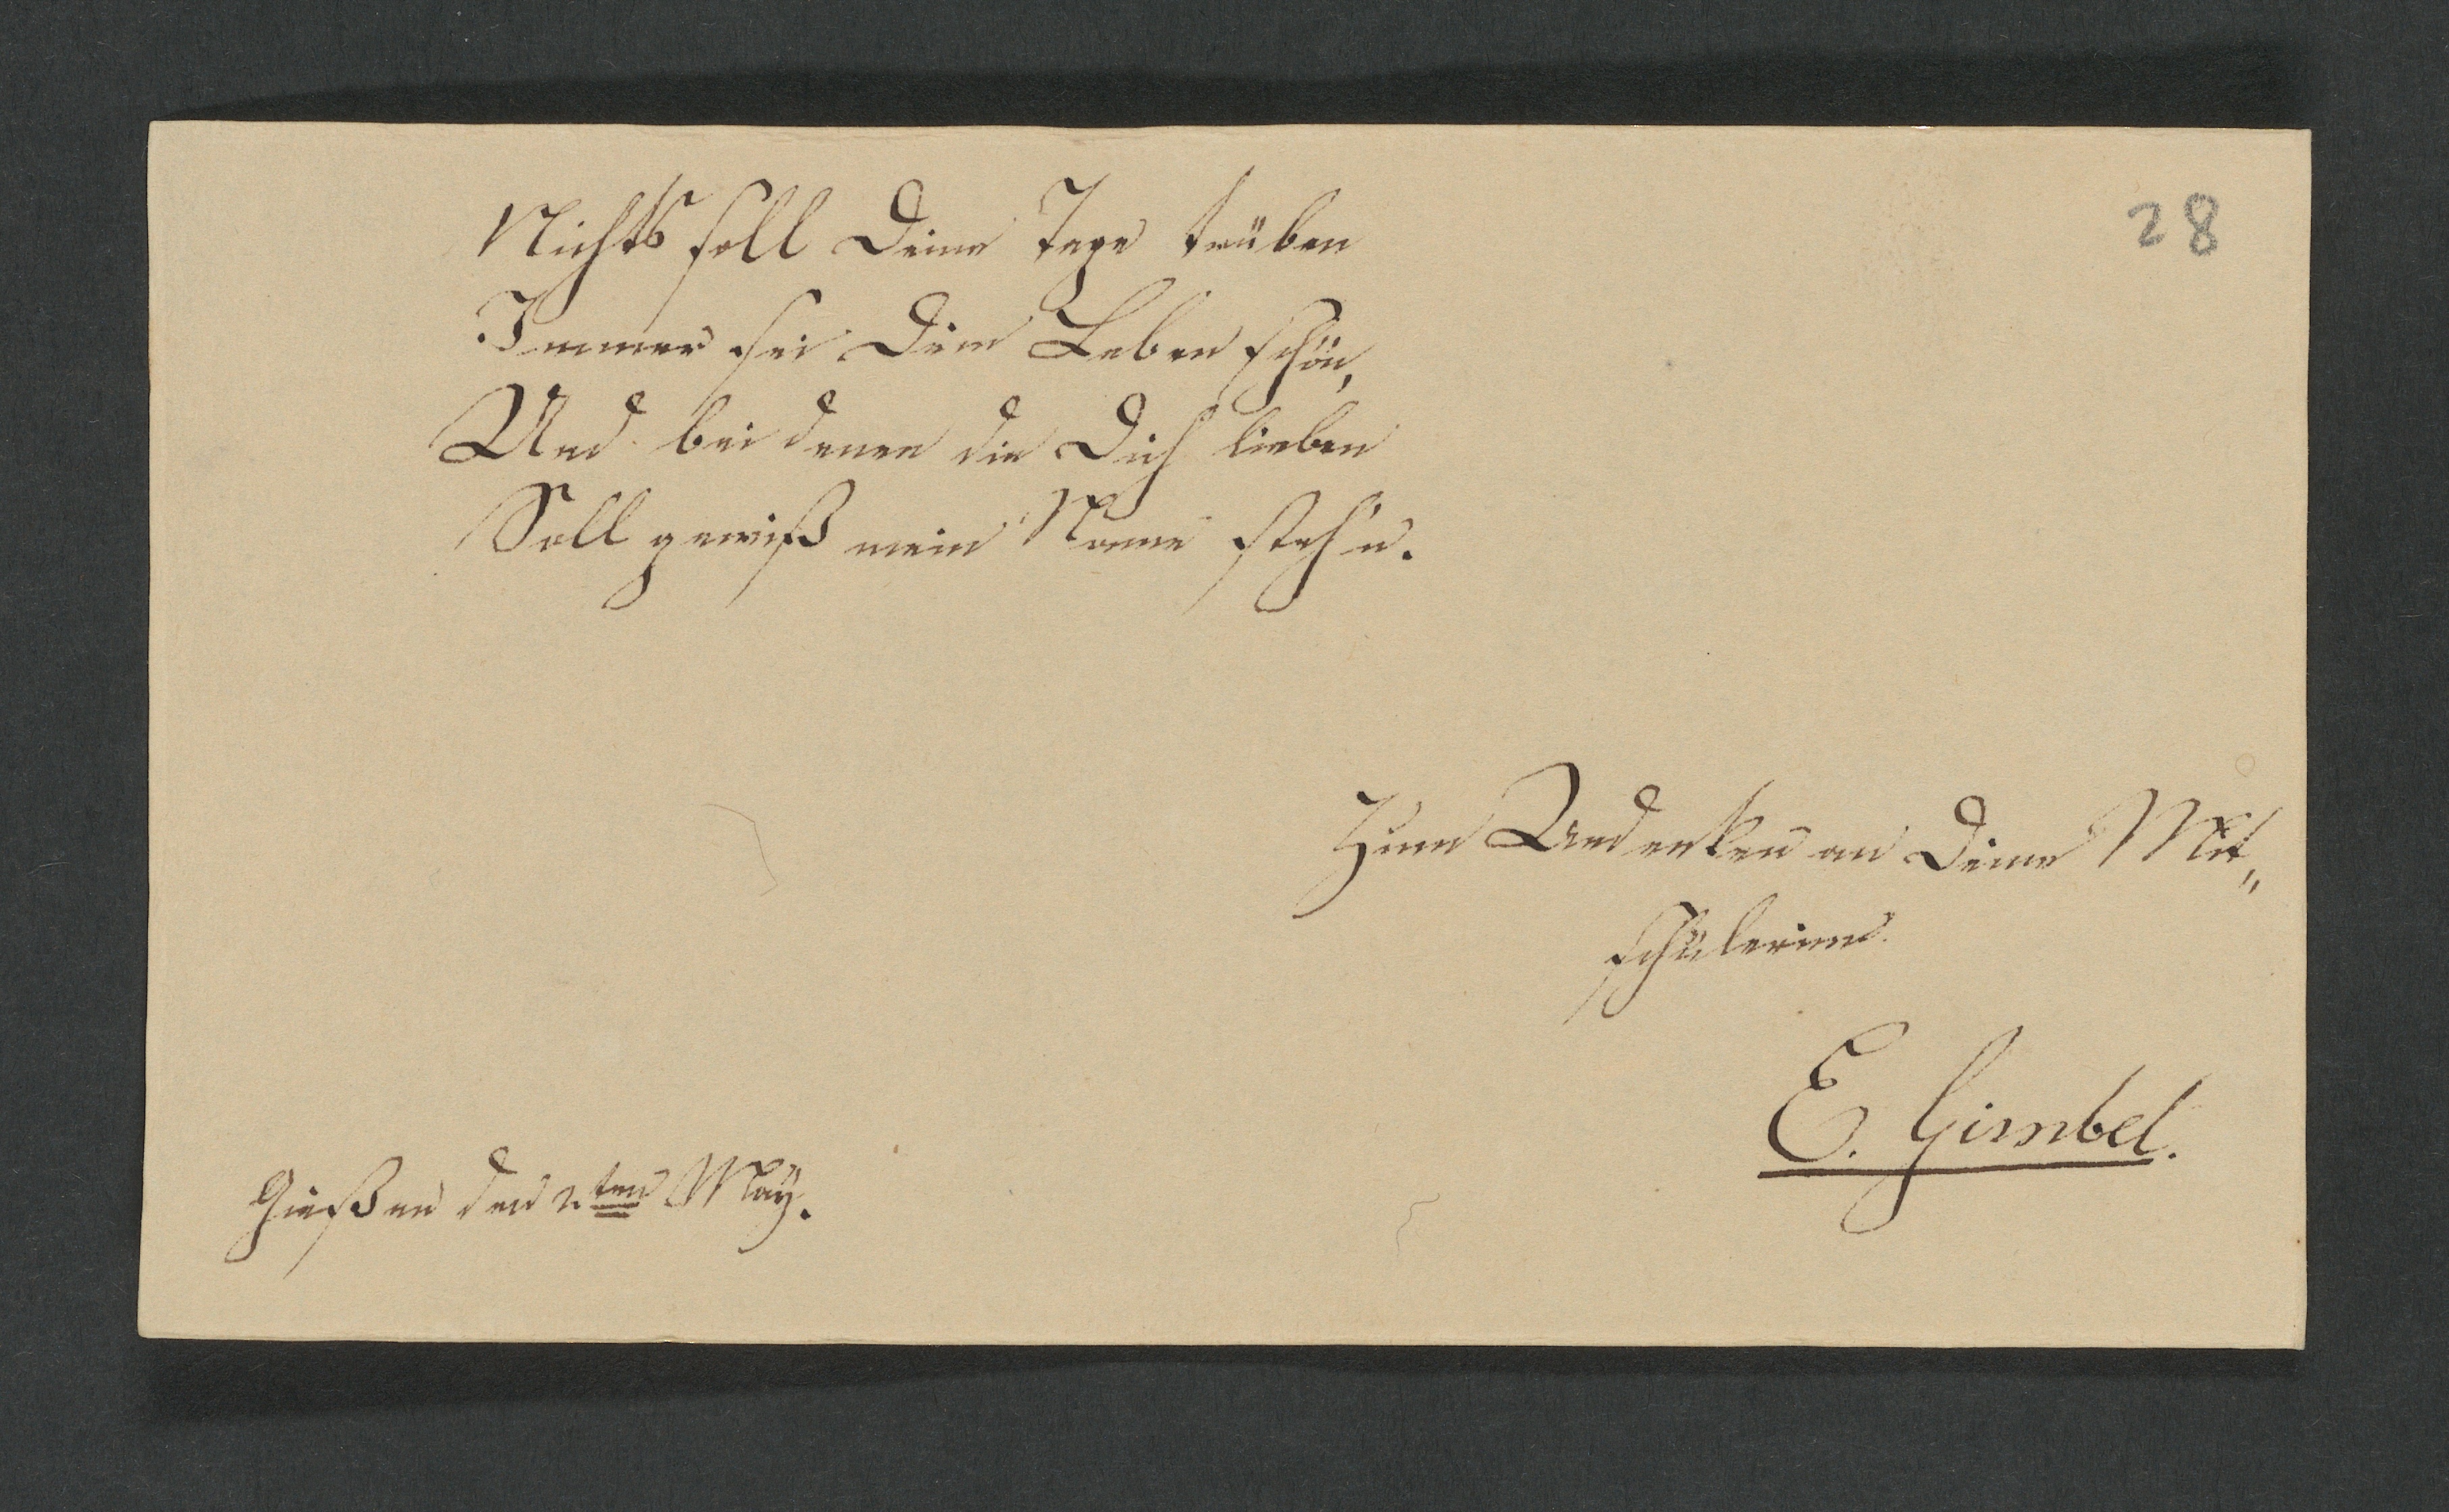 28
Nichts soll Deine Tage trüben
Immer sei Dein Leben schön,
Und bei denen die Dich lieben
Soll gewiß mein Name steh'n.
Zum Andenken an Deine Mit„
schülerinn.
E. Gimbel.
Gießen den 2ten May.